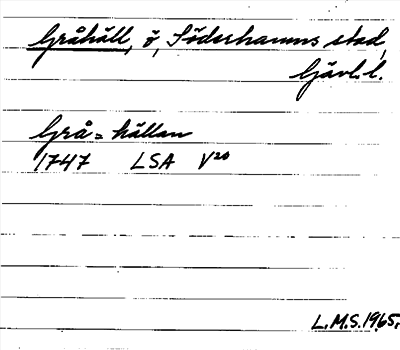 Gråhäll, ö, Söderhamns stad,
Gävl. l.
Grå=hällan
1747 LSA V20
L.M.S. 1965.